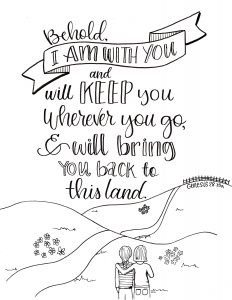 Behold,
I AM WITH YOU
and
will KEEP you
wherever you go,
& will bring
YOU back to
this land.
GENESIS 28:15a